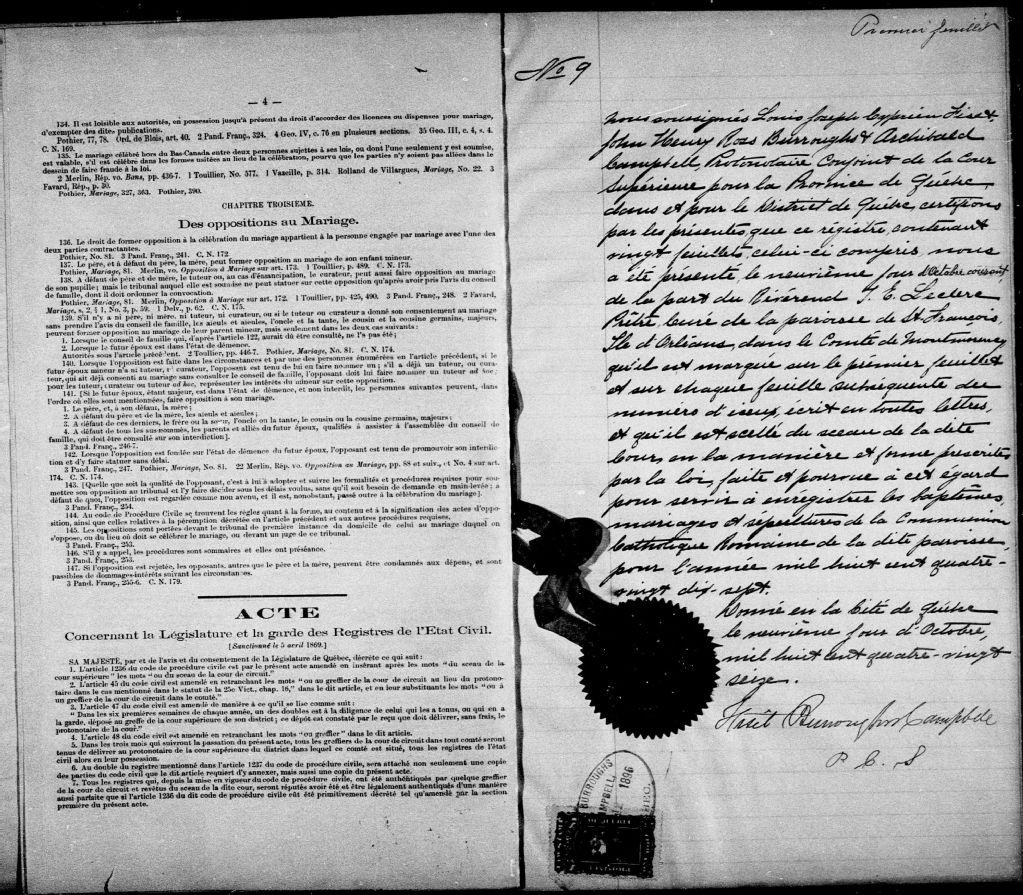 — 4 —
134. Il est loisible aux autorités, en possession jusqu'à présent du droit d'accorder des licences ou dispenses pour mariage,
d'exempter des dites publications.
Pothier, 77, 78. Ord. de Blois, art. 40. 2 Pand. Franç., 324. 4 Geo. IV, c. 76 en plusieurs sections. 35 Geo. III, c. 4, s. 4.
C. N. 169.
135. Le mariage célébré hors du Bas-Canada entre deux personnes sujettes à ses lois, ou dont l'une seulement y est soumise,
est valable, s'il est célébré dans les formes usitées au lieu de la célébration, pourvu que les parties n'y soient pas allées dans le
dessein de faire fraude à la loi.
2 Merlin, Rép. vo. Bans, pp. 436-7. 1 Touillier, No. 577. 1 Vazeille, p. 314. Rolland de Villargues, Mariage, No. 22. 3
Favard, Rép., p. 50.
Pothier, Mariage, 327, 363. Pothier, 390.
CHAPITRE TROISIEME.
Des oppositions au Mariage.
136. Le droit de former opposition à la célébration du mariage appartient à la personne engagée par mariage avec l'une des
deux parties contractantes.
Pothier, No. 81. 3 Pand. Franç., 241. C. N. 172.
137. Le père, et à défaut du père, la mère, peut former opposition au mariage de son enfant mineur.
Pothier, Mariage, 81. Merlin, vo. Opposition à Mariage sur art. 173. 1 Touillier, p. 489. C. N. 173.
138. A défaut de père et de mère, le tuteur ou, au cas d'émancipation, le curateur, peut aussi faire opposition au mariage
de son pupille; mais le tribunal auquel elle est soumise ne peut statuer sur cette opposition qu'après avoir pris l'avis du conseil
de famille, dont il doit ordonner la convocation.
Pothier, Mariage, 81. Merlin, Opposition à Mariage sur art. 172. 1 Touillier, pp. 425, 490. 3 Pand. Franç., 248. 2 Favard,
Mariage, s. 2, § 1, No. 3, p. 59. 1 Delv., p. 62. C. N. 175.
139. S'il n'y a ni père, ni mère, ni tuteur, ni curateur, ou si le tuteur ou curateur a donné son consentement au mariage
sans prendre l'avis du conseil de famille, les aïeuls et aïeules, l'oncle et la tante, le cousin et la cousine germains, majeurs,
peuvent former opposition au mariage de leur parent mineur, mais seulement dans les deux cas suivants:
1. Lorsque le conseil de famille qui, d'après l'article 122, aurait dû être consulté, ne l'a pas été;
2. Lorsque le futur époux est dans l'état de démence.
Autorités sous l'article précédent. 2 Touillier, pp. 446-7. Pothier, Mariage, No. 81. C. N. 174.
140. Lorsque l'opposition est faite dans les circonstances et par une des personnes énumérées en l'article précédent, si le
futur époux mineur n'a ni tuteur, ni curateur, l'opposant est tenu de lui en faire nommer un; s'il a déjà un tuteur, ou cura-
teur, qui ait déjà consenti au mariage sans consulter le conseil de famille, l'opposant doit lui faire nommer un tuteur ad hoc;
pour les tuteur, curateur ou tuteur ad hoc, représenter les intérêts du mineur sur cette opposition.
141. [Si le futur époux, étant majeur, est dans l'état de démence, et non interdit, les personnes suivantes peuvent, dans
l'ordre où elles sont mentionnées, faire opposition à son mariage.
1. Le père, et, à son défaut, la mère;
2. A défaut du père et de la mère, les aïeuls et aïeules;
3. A défaut de ces derniers, le frère ou la sœur, l'oncle ou la tante, le cousin ou la cousine germains, majeurs;
4. A défaut de tous les sus-nommés, les parents et alliés du futur époux, qualifiés à assister à l'assemblée du conseil de
famille, qui doit être consulté sur son interdiction].
3 Pand. Franç., 246-7.
142. Lorsque l'opposition est fondée sur l'état de démence du futur époux, l'opposant est tenu de promouvoir son interdic-
tion et d'y faire statuer sans délai.
3 Pand. Franç., 247. Pothier, Mariage, No. 81. 22 Merlin, Rép. vo. Opposition au Mariage, pp. 88 et suiv., et No. 4 sur art.
174. C. N. 174.
143. [Quelle que soit la qualité de l'opposant, c'est à lui à adopter et suivre les formalités et procédures requises pour sou-
mettre son opposition au tribunal et l'y faire décider sous les délais voulus, sans qu'il soit besoin de demande en main-levée; à
défaut de quoi, l'opposition est regardée comme non avenu, et il est, nonobstant, passé outre à la célébration du mariage].
3 Pand. Franç., 254.
144. Au code de Procédure Civile se trouvent les règles quant à la forme, au contenu et à la signification des actes d'oppo-
sition, ainsi que celles relatives à la péremption décrétée en l'article précédent et aux autres procédures requises.
145. Les oppositions sont portées devant le tribunal de première instance du domicile de celui au mariage duquel on
s'oppose, ou du lieu où doit se célébrer le mariage, ou devant un juge de ce tribunal.
3 Pand. Franç., 253.
146. S'il y a appel, les procédures sont sommaires et elles ont préséance.
3 Pand. Franç., 253.
147. Si l'opposition est rejetée, les opposants, autres que le père et la mère, peuvent être condamnés aux dépens, et sont
passibles de dommages-intérêts suivant les circonstances.
3 Pand. Franç., 255-6. C. N. 179.
ACTE
Concernant la Législature et la garde des Registres de l'Etat Civil.
[Sanctionné le 5 avril 1869.]
SA MAJESTÉ, par et de l'avis et du consentement de la Législature de Québec, décrète ce qui suit:
1. L'article 1236 du code de procédure civile est par le présent acte amendé en insérant après les mots "du sceau de la
cour supérieure" les mots "ou du sceau de la cour de circuit."
2. L'article 45 du code civil est amendé en retranchant les mots "ou au greffier de la cour de circuit au lieu du protono-
taire dans le cas mentionné dans le statut de la 25e Vict., chap. 16," dans le dit article, et en leur substituant les mots "ou à
un greffier de la cour de circuit dans le comté."
3. L'article 47 du code civil est amendé de manière à ce qu'il se lise comme suit:
"Dans les six premières semaines de chaque année, un des doubles est à la diligence de celui qui les a tenus, ou qui en a
la garde, déposé au greffe de la cour supérieure de son district; ce dépôt est constaté par le reçu que doit délivrer, sans frais, le
protonotaire de la cour."
4. L'article 48 du code civil est amendé en retranchant les mots "ou greffier" dans le dit article.
5. Dans les trois mois qui suivront la passation du présent acte, tous les greffiers de la cour de circuit dans tout comté seront
tenus de délivrer au protonotaire de la cour supérieure du district dans lequel ce comté est situé, tous les registres de l'état
civil alors en leur possession.
6. Au double du registre mentionné dans l'article 1237 du code de procédure civile, sera attaché non seulement une copie
des parties du code civil que le dit article requiert d'y annexer, mais aussi une copie du présent acte.
7. Tous les registres qui, depuis la mise en vigueur du code de procédure civile, ont été authentiqués par quelque greffier
de la cour de circuit et revêtus du sceau de la dite cour, seront réputés avoir été et être légalement authentiqués d'une manière
aussi parfaite que si l'article 1236 du dit code de procédure civile eût été primitivement décrété tel qu'amendé par la section
première du présent acte.
Premier feuillet
No 9
nous soussignés Louis Joseph Cyprien Fiset
John Henry Ross Burroughs & Archibald
Campbell, Protonotaire Conjoint de la Cour
Supérieure pour la Province de Québec
dans et pour le District de Québec, certifions
par les présentes, que ce registre, contenant
vingt feuillets, celui-ci compris, nous
a été présenté, le neuvième jour d'Octobre courant,
de la part du Révérend J. E. Leclerc
Prêtre, Curé de la paroisse de St. François,
Ile d'Orléans, dans le Comté de Montmorency
qu'il est marqué sur le premier feuillet
et sur chaque feuille subséquente du
numéro d'iceux, écrit en toutes lettres,
et qu'il est scellé du sceau de la dite
Cour, en la manière et forme prescrites
par la loi, faite et pourvue à cet égard
pour servir à enregistrer les baptêmes,
mariages et sépultures de la Communion
Catholique Romaine de la dite paroisse,
pour l'année mil huit cent quatre-
vingt dix-sept.
Donné en la Cité de Québec
le neuvième jour d'Octobre,
mil huit cent quatre-vingt
seize.
Fiset Burroughs Campbell
P. C. S
BURROUGHS
CAMPBELL
1896